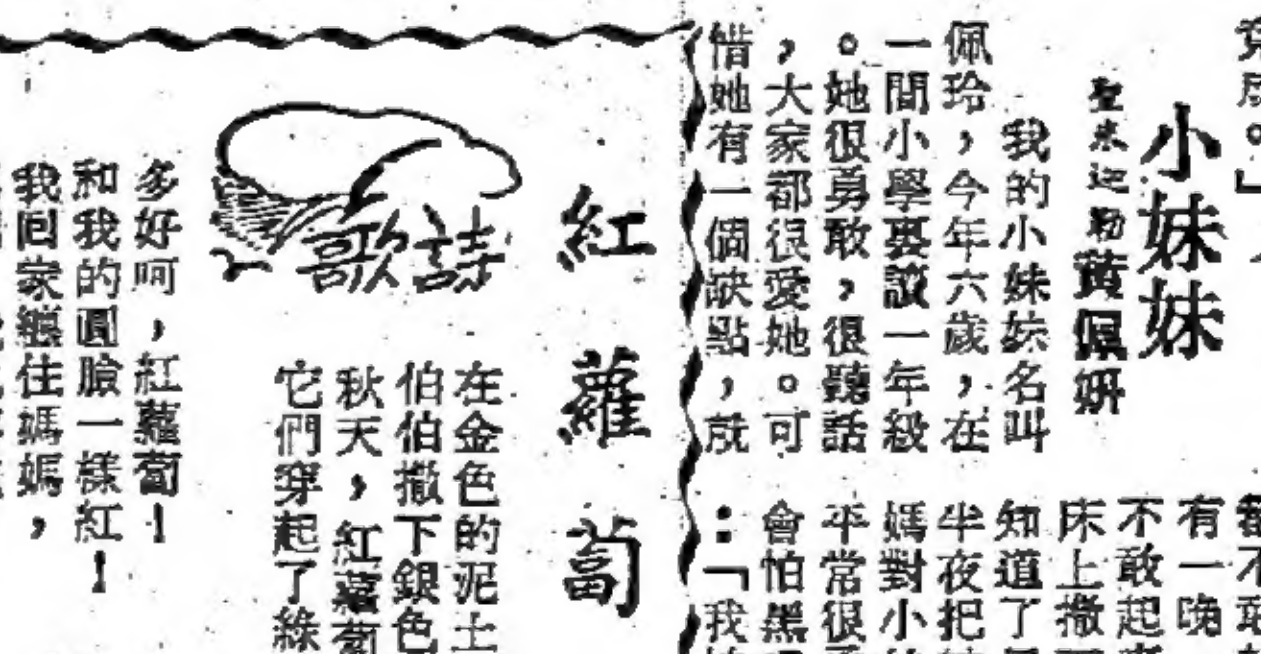 小妹妹
黃佩妍
我的小妹妹名叫
佩玲，今年六歲，在
一間小學裏讀一年級
。她很勇敢，很聽話
，大家都很愛她。可
惜她有一個缺點，就
有一晚
不敢起
床上撒
知道了
半夜把
媽對小
平常很
會怕黑
：「我
紅蘿蔔
詩歌
在金色的泥土
伯伯撒下銀色
秋天，紅蘿蔔
它們穿起了綠
多好呵，紅蘿蔔！
和我的圓臉一樣紅！
我回家纏住媽媽，